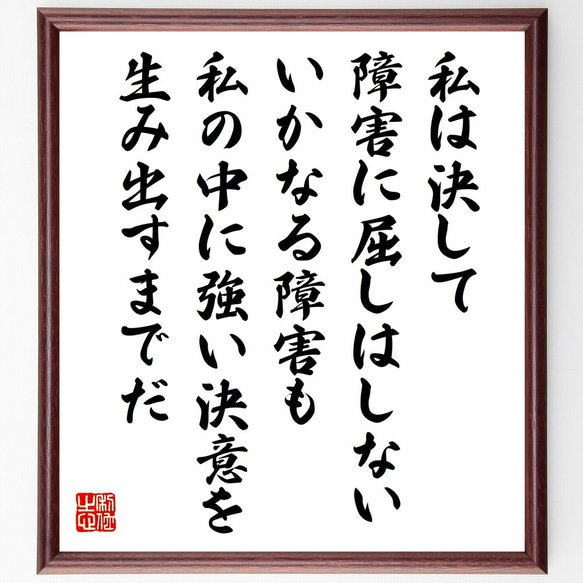 私は決して
障害に屈しはしない
いかなる障害も
私の中に強い決意を
生み出すまでだ